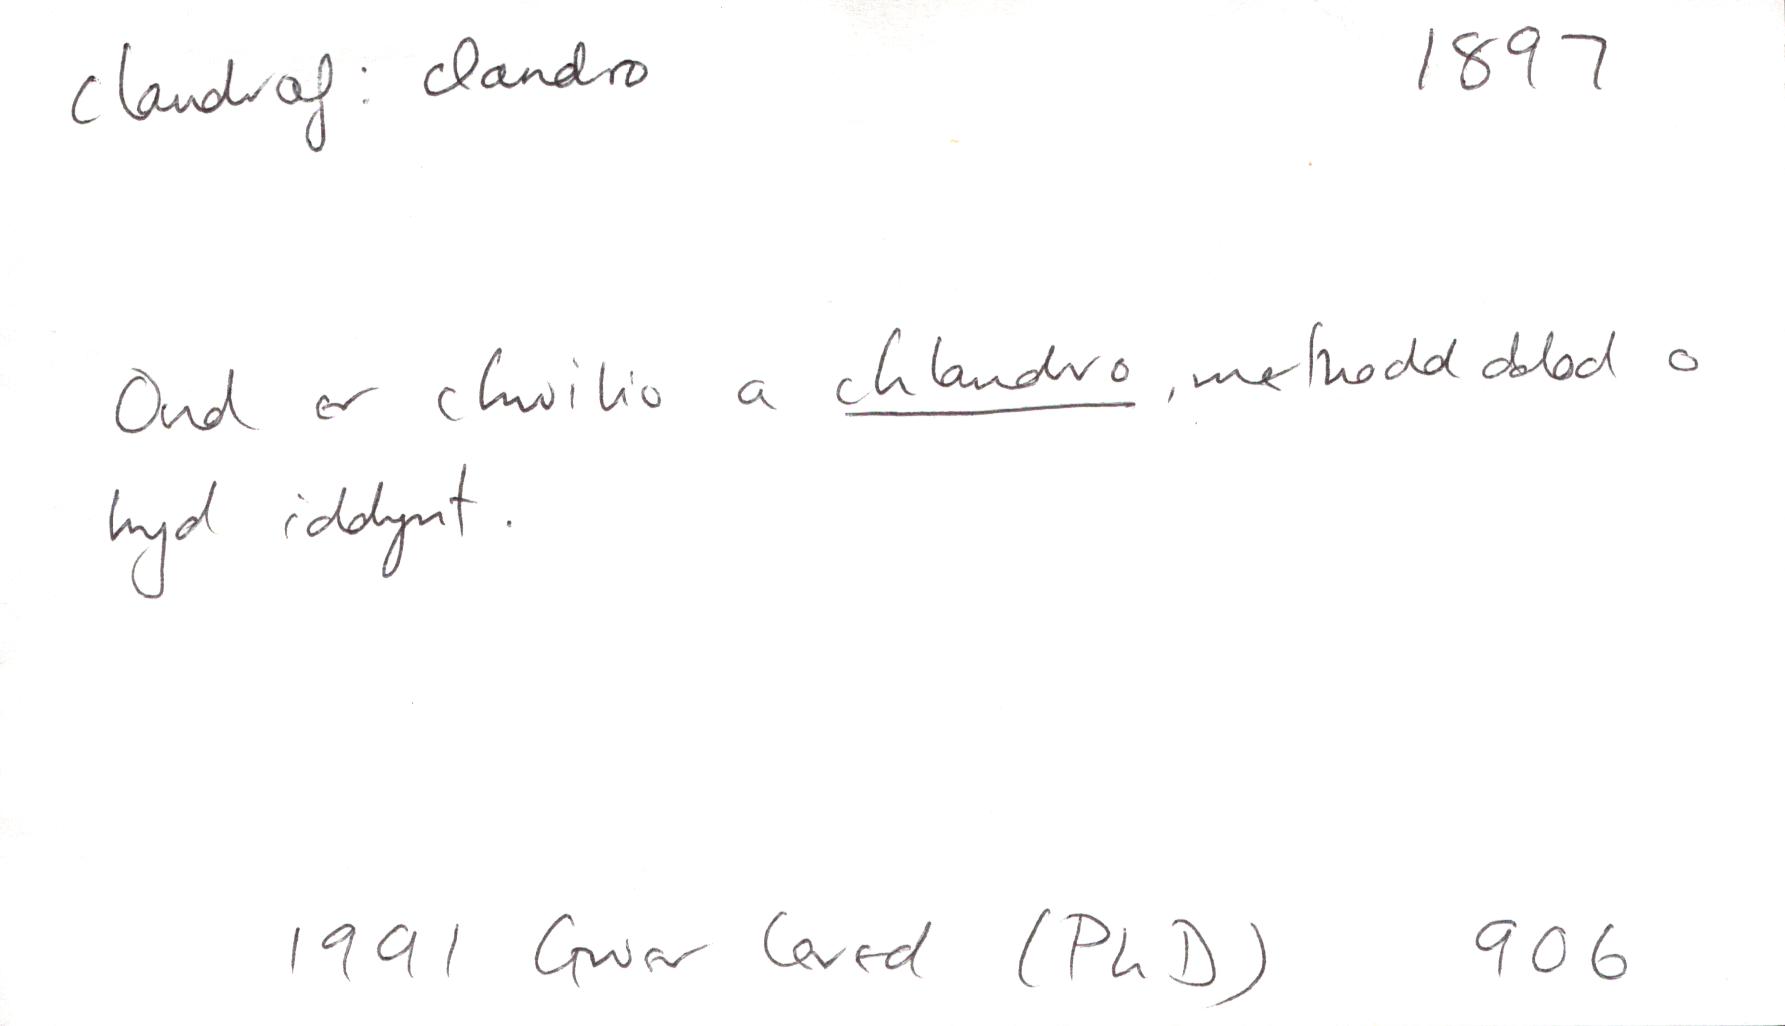 clandraf: clandro 1897
Ond er chwilio a chlandro, methodd dod o
hyd iddynt.
1991 Gwer Cered (PhD) 906